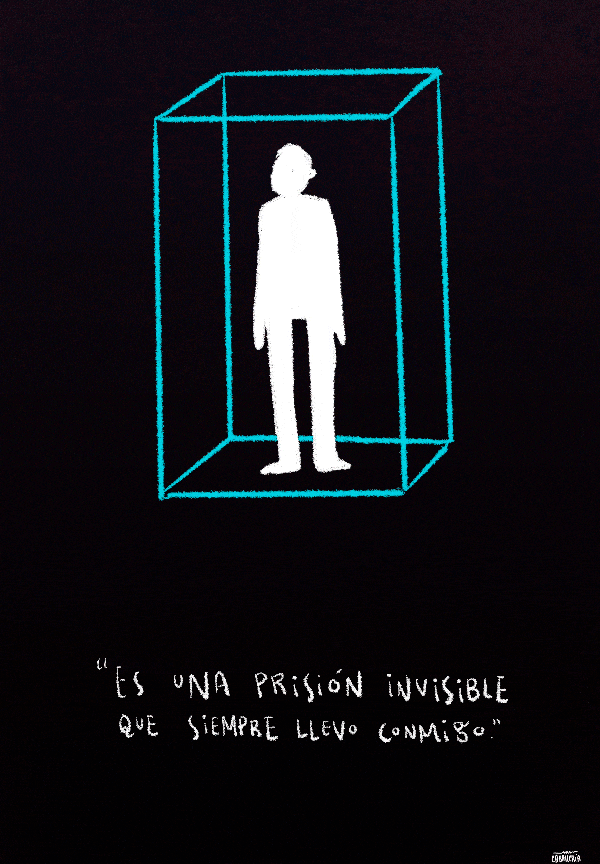 “ES UNA PRISIÓN INVISIBLE
QUE SIEMPRE LLEVO CONMIGO.”